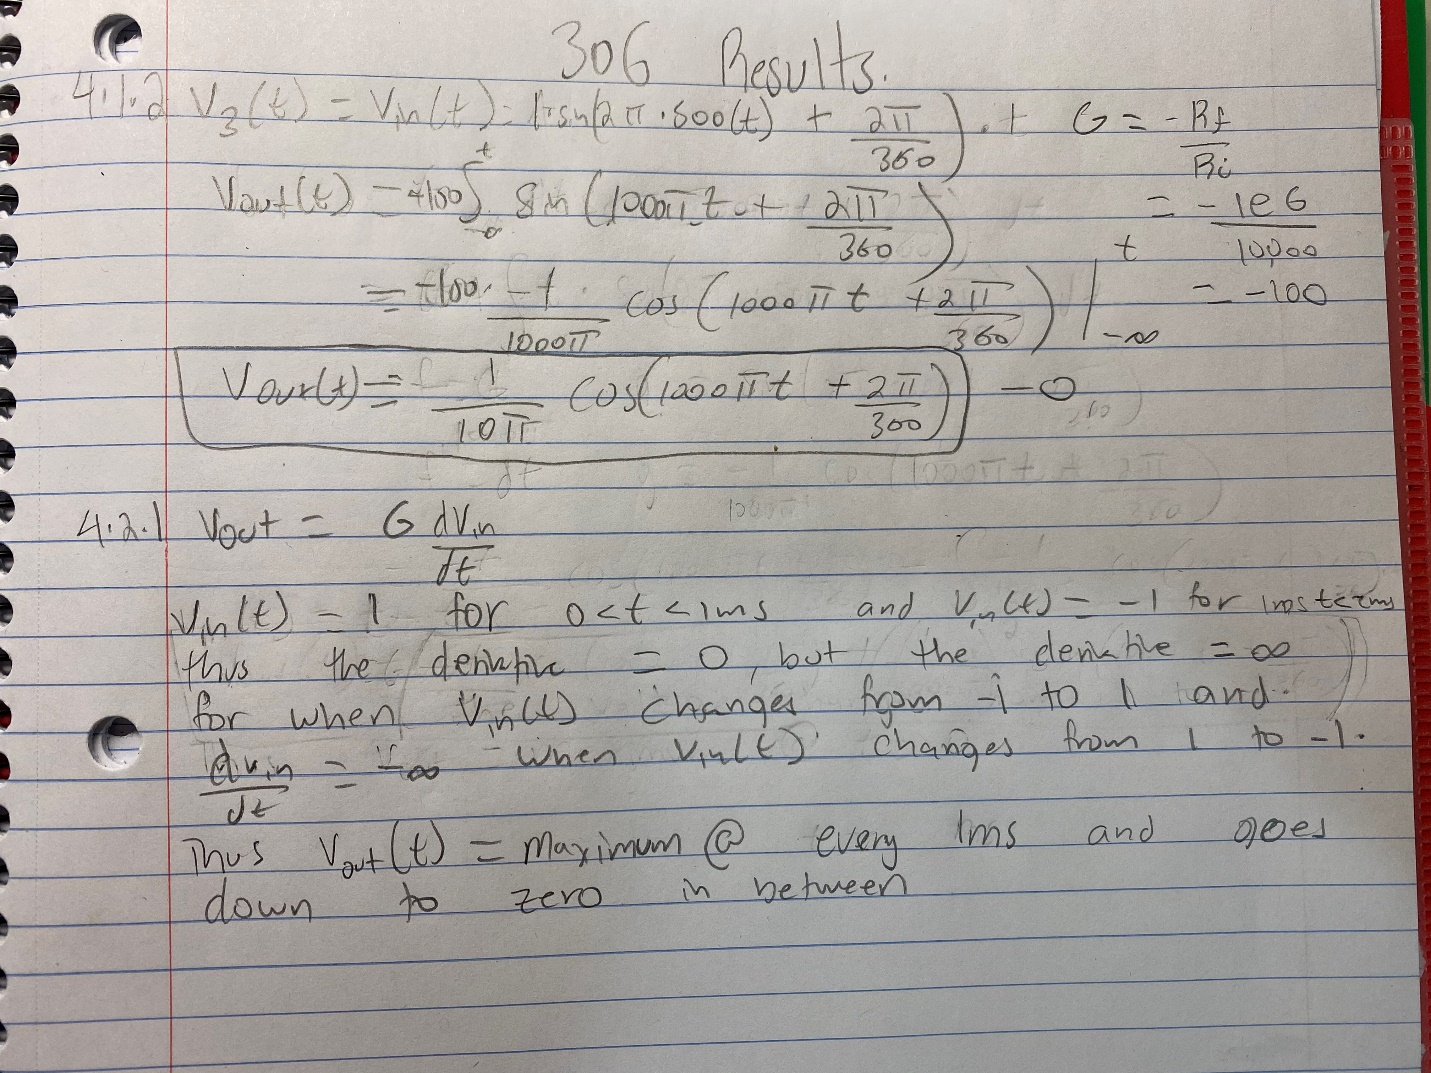 306 Results.
4.1.2 V₃(t) = Vin(t) = 1·sin(2π·500(t) + 2π/360).t G = -Rf/Ri
Vout(t) = -100 ∫ t -∞ sin(1000πt + 2π/360) = -1e6/10,000
= -100· -1/1000π cos(1000πt + 2π/360) | t -∞ = -100
Vout(t) = 1/10π cos(1000πt + 2π/300) - 0
4.2.1 Vout = G dVin/dt
Vin(t) = 1 for 0<t<1ms and Vin(t) = -1 for 1ms
thus the derivative = 0, but the derivative = ∞
for when Vin(t) changes from -1 to 1 and
dvin/dt = -∞ when Vin(t) changes from 1 to -1.
Thus Vout(t) = maximum @ every 1ms and goes
down to zero in between